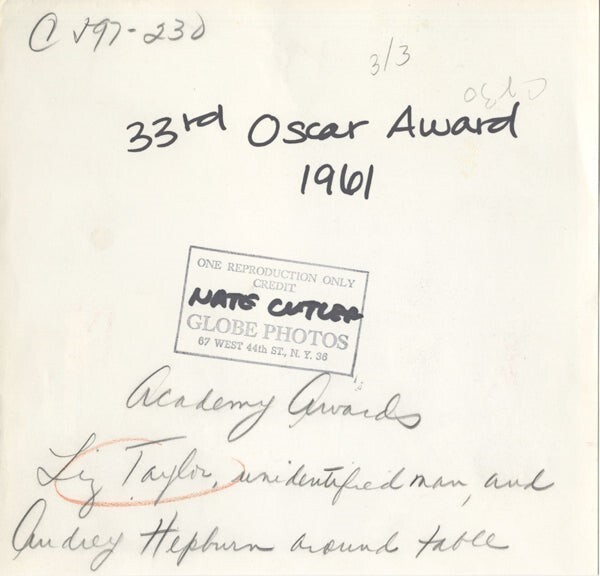 3/3
33rd Oscar Award
1961
ONE REPRODUCTION ONLY
CREDIT
NATE CUTLER
GLOBE PHOTOS
67 WEST 44th ST., N. Y. 36
Academy Awards
Liz Taylor, unidentified man, and
Audrey Hepburn around table